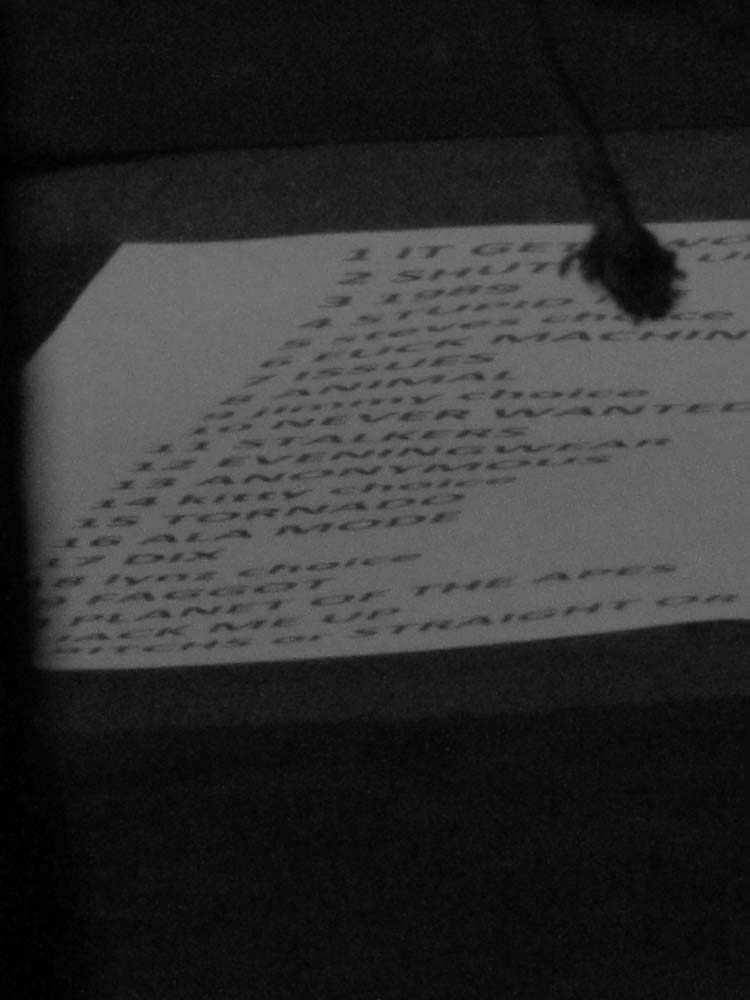 1 IT GET
2 SHUT
3 1989
4 STUPID
5 steves choice
6 FUCK MACHIN
7 ISSUES
8 ANIMAL
9 jimmy choice
10 NEVER WANTED
11 STALKERS
12 EVENINGWEAR
13 ANONYMOUS
14 kitty choice
15 TORNADO
16 ALA MODE
17 DIX
18 lynz choice
9 FAGGOT
PLANET OF THE APES
JACK ME UP
BITCHS or STRAIGHT OR